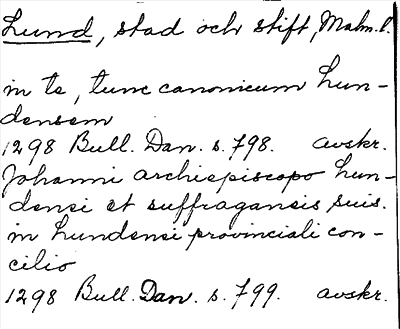 Lund, stad och stift, Malm. l.
in te, tunc canonicum Lun-
densem
1298 Bull. Dan. s. 798. avskr.
Johanni archiepiscopo Lun-
densi et suffraganeis suis.
in Lundensi provinciali con-
cilio
1298 Bull. Dan. s. 799. avskr.